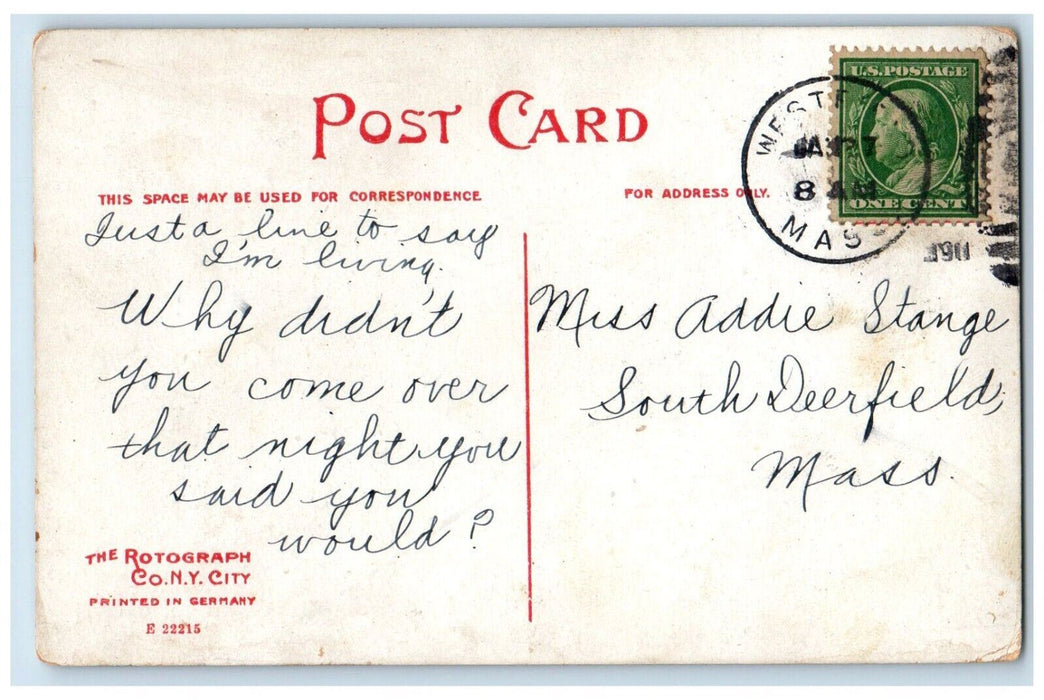 POST CARD
THIS SPACE MAY BE USED FOR CORRESPONDENCE
FOR ADDRESS ONLY.
U.S. POSTAGE
ONE CENT
8 AM
MASS
Just a line to say
I'm living.
Why didn't
you come over
that night you
said you
would?
Miss Addie Stange
South Deerfield,
Mass.
THE ROTOGRAPH
CO. N.Y. CITY
PRINTED IN GERMANY
E 22215